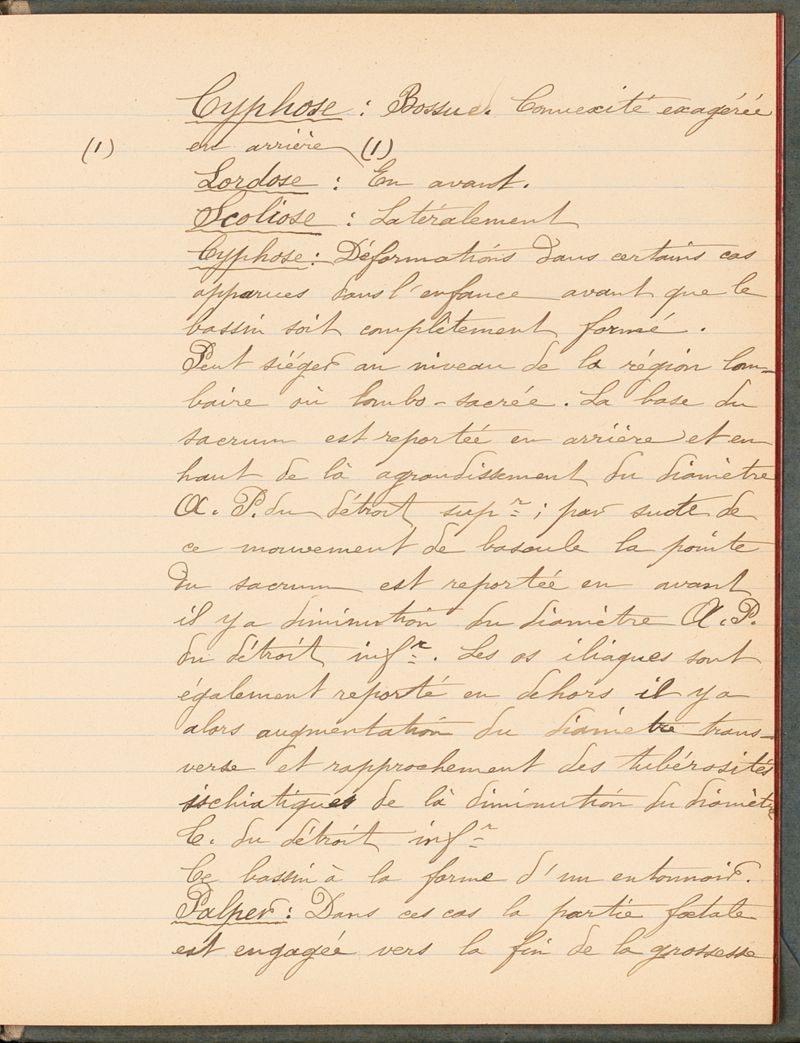 Cyphose : Bossue. Convexité exagérée
(1) en arrière (1)
Lordose : En avant.
Scoliose : Latéralement
Cyphose : Déformations dans certains cas
apparues dans l'enfance avant que le
bassin soit complètement formé.
Peut siéger au niveau de la région lom-
baire où lombo-sacrée. La base du
sacrum est reportée en arrière et en
haut de là agrandissement du diamètre
A. P. du détroit supr ; par suite de
ce mouvement de bascule la pointe
du sacrum est reportée en avant
il y a diminution du diamètre A. P.
du détroit infr. Les os iliaques sont
également reporté en dehors il y a
alors augmentation du diamètre trans-
verse et rapprochement des tubérosités
ischiatiques de là diminution du diamètre
T. du détroit infr
Ce bassin à la forme d'un entonnoir.
Palper : Dans ces cas la partie fœtale
est engagée vers la fin de la grossesse